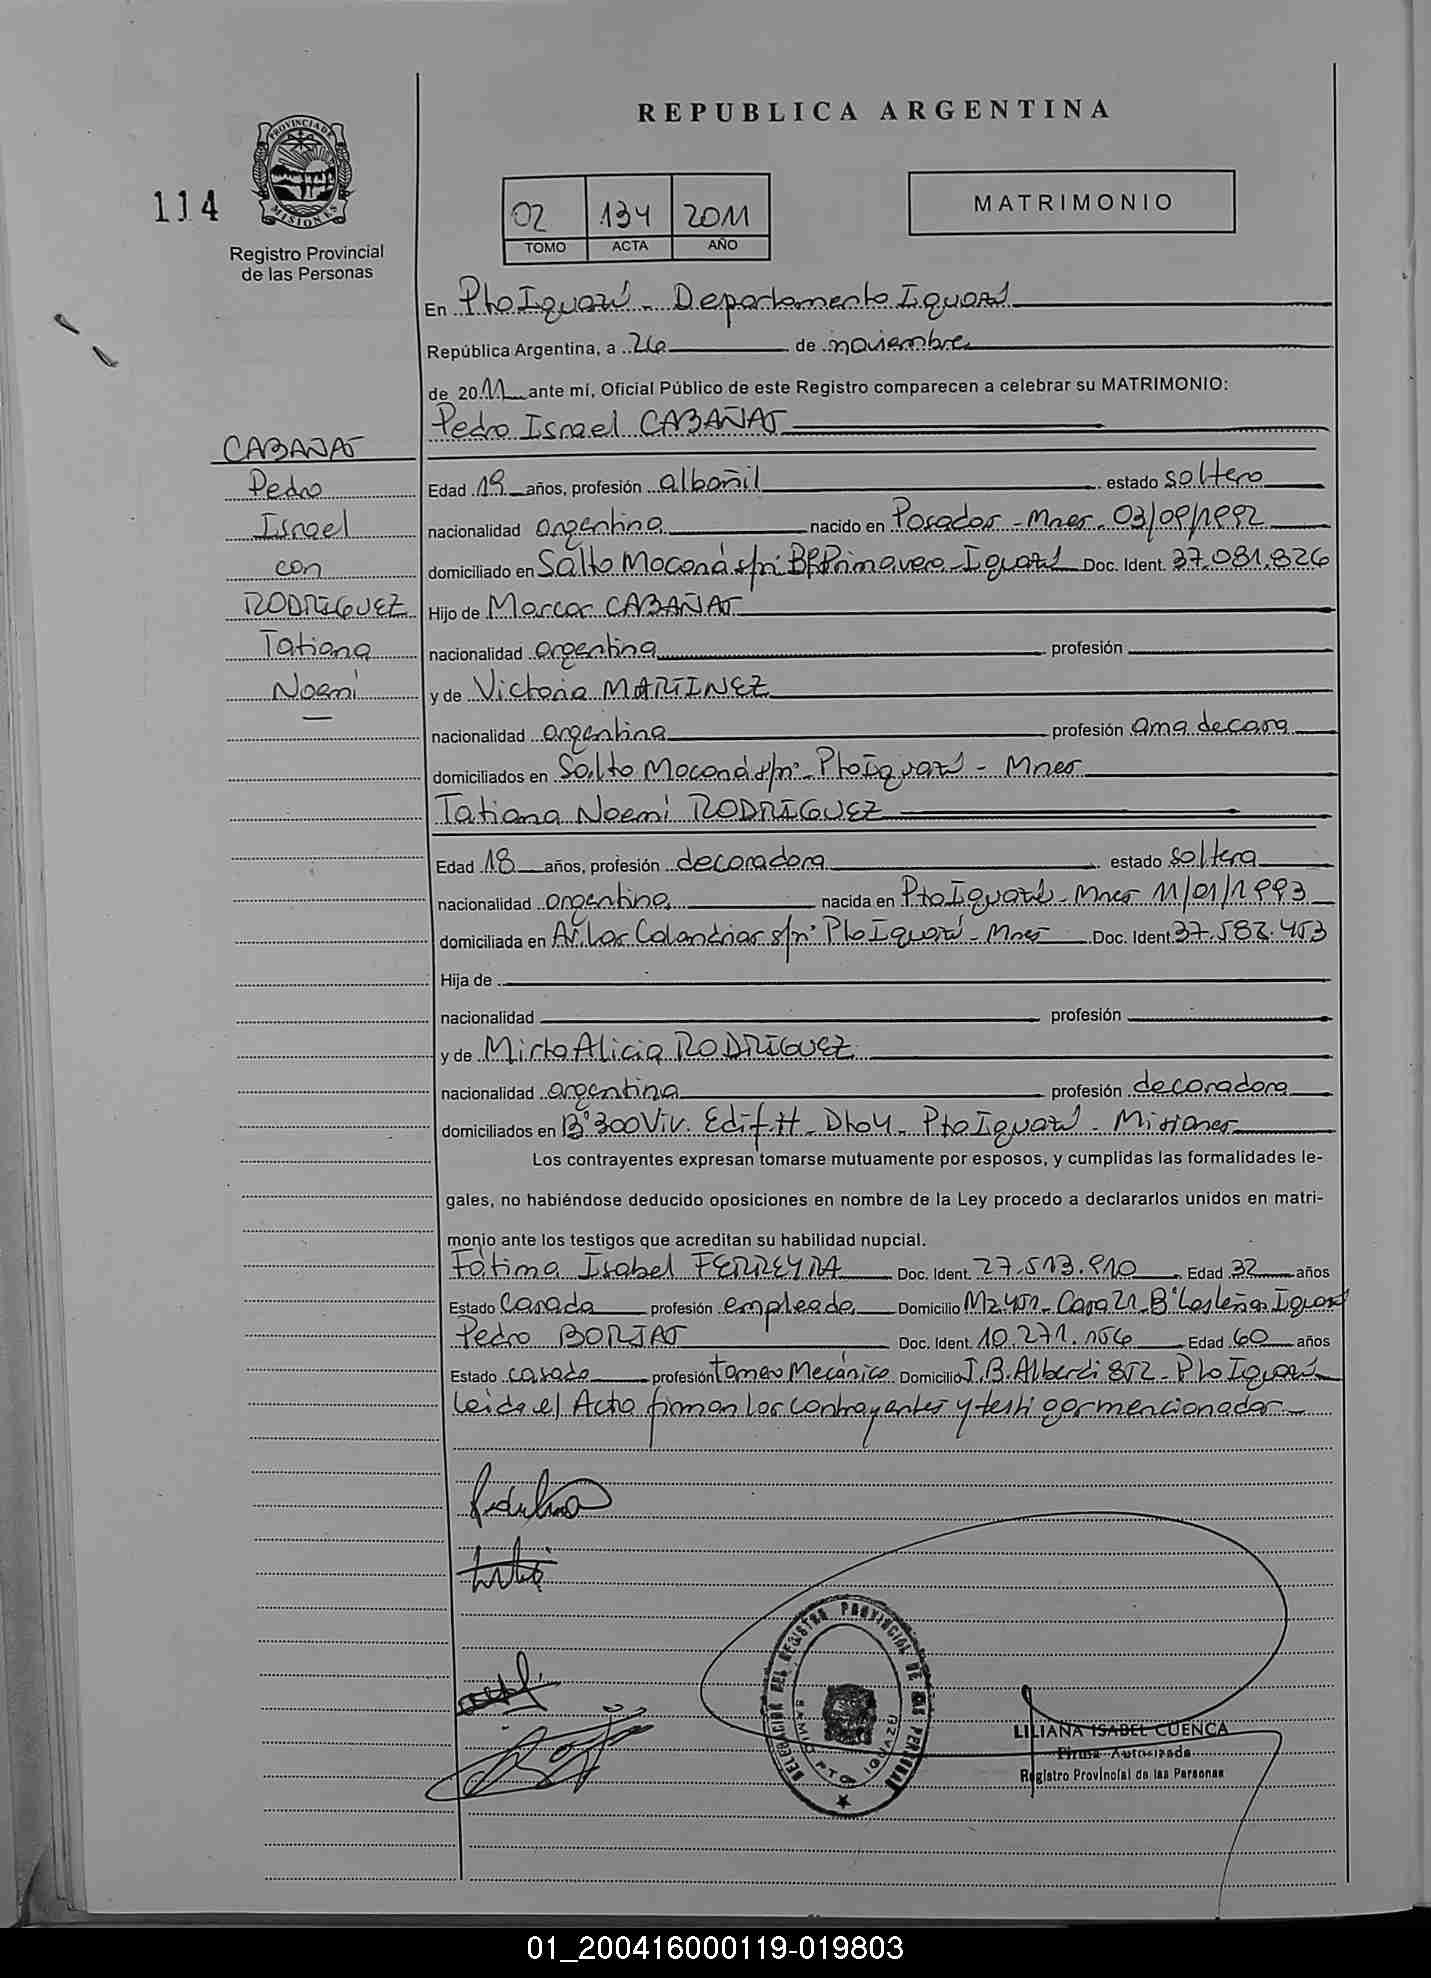 REPUBLICA ARGENTINA
114
PROVINCIA DE MISIONES
Registro Provincial
de las Personas
02 134 2011
TOMO ACTA AÑO
MATRIMONIO
En Pto Iguazú - Departamento Iguazú
República Argentina, a 26 de noviembre
de 2011 ante mí, Oficial Público de este Registro comparecen a celebrar su MATRIMONIO:
Pedro Israel CABAÑAS
CABAÑAS
Pedro
Israel
con
RODRIGUEZ
Tatiana
Noemí
Edad 19 años, profesión albañil estado soltero
nacionalidad argentina nacido en Posadas - Mnes. 03/09/1992
domiciliado en Salto Moconá s/nº Bº Primavera - Iguazú Doc. Ident. 37.081.826
Hijo de Marcos CABAÑAS
nacionalidad argentina profesión
y de Victoria MARTINEZ
nacionalidad argentina profesión ama de casa
domiciliados en Salto Moconá s/nº - Pto Iguazú - Mnes
Tatiana Noemí RODRIGUEZ
Edad 18 años, profesión decoradora estado soltera
nacionalidad argentina nacida en Pto Iguazú - Mnes 11/01/1993
domiciliada en Av. Las Calandrias s/nº Pto Iguazú - Mnes Doc. Ident. 37.582.453
Hija de
nacionalidad profesión
y de Mirta Alicia RODRIGUEZ
nacionalidad argentina profesión decoradora
domiciliados en Bº 300 Viv. Edif. H - Dto 4 - Pto Iguazú - Misiones
Los contrayentes expresan tomarse mutuamente por esposos, y cumplidas las formalidades le-
gales, no habiéndose deducido oposiciones en nombre de la Ley procedo a declararlos unidos en matri-
monio ante los testigos que acreditan su habilidad nupcial.
Fátima Isabel FERREYRA Doc. Ident. 27.513.910 Edad 32 años
Estado Casada profesión empleada Domicilio Mz 451 - Casa 21 - Bº Las Leñas Iguazú
Pedro BORJAS Doc. Ident. 10.271.156 Edad 60 años
Estado casado profesión tornero Mecánico Domicilio J.B. Alberdi 852 - Pto Iguazú
Leída el Acta firman los contrayentes y testigos mencionados
DELEGACION DEL REGISTRO PROVINCIAL DE LAS PERSONAS
PTO IGUAZU
LILIANA ISABEL CUENCA
Firma Autorizada
Registro Provincial de las Personas
01_200416000119-019803